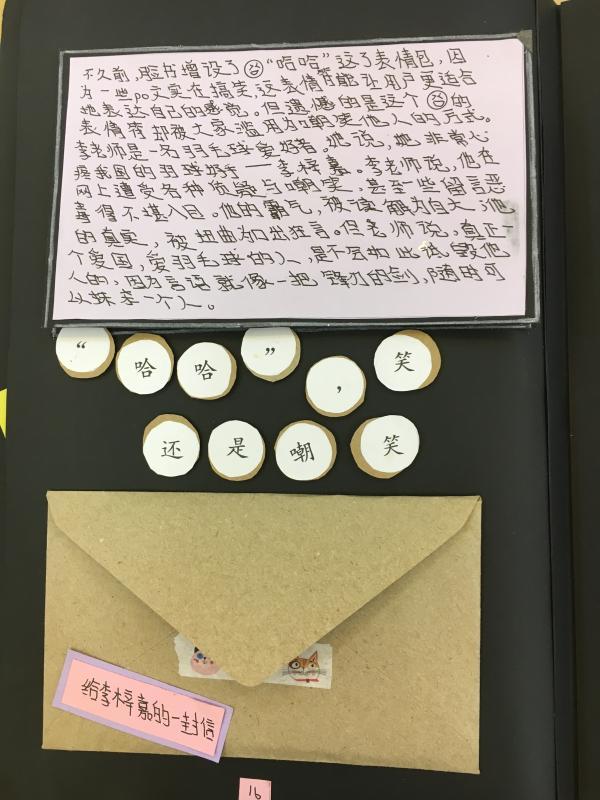 不久前，脸书增设了“哈哈”这个表情包，因
为一些po文实在搞笑，这表情符能让用户更适合
地表达自己的感觉。但遗憾的是这个的
表情符却被大家滥用为嘲笑他人的方式。
李老师是一名羽毛球爱好者。他说，他非常心
疼我国的羽球好手——李梓嘉。李老师说，他在
网上遭受各种侮辱与嘲笑，甚至些留言恶
毒得不堪入目。他的霸气，被误解为自大；他
的真实，被扭曲为口出狂言。但老师说，真正一
个爱国，爱羽毛球的人，是不会如此诋毁他
人的，因为言语就像一把锋利的剑，随时可
以抹杀一个人。
“哈哈”，笑
还是嘲笑
给李梓嘉的一封信
16